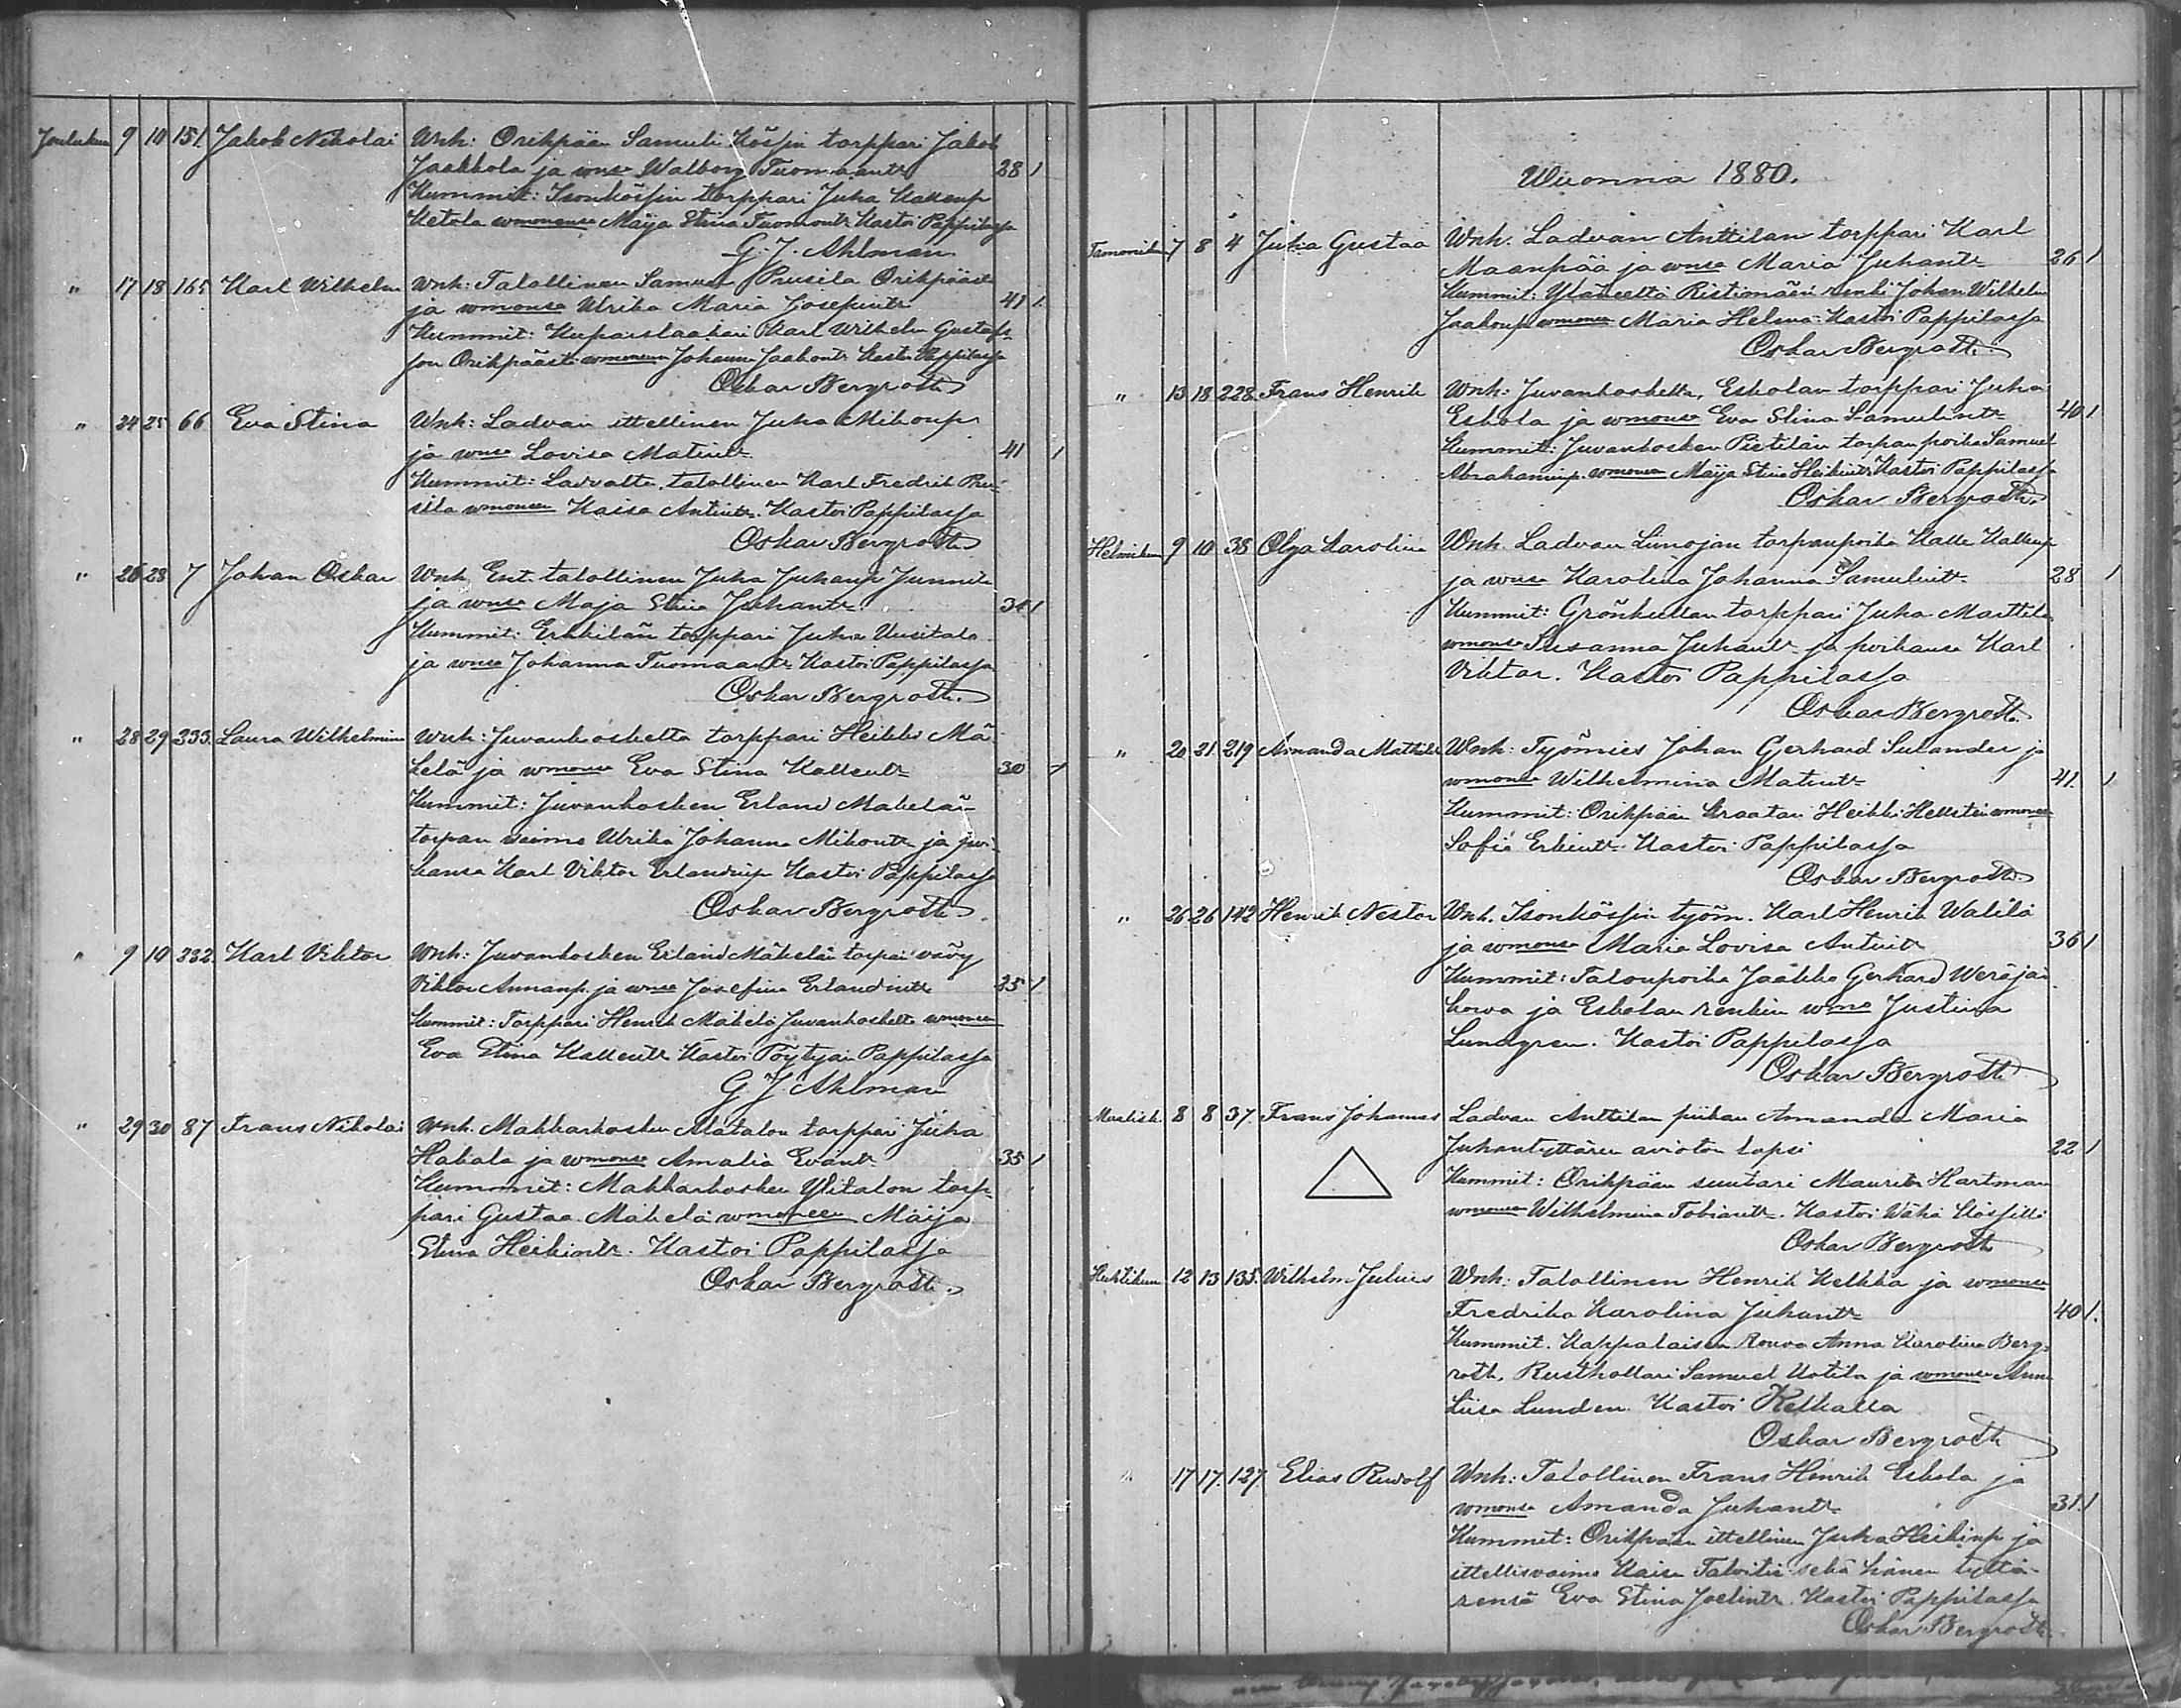 Joulukuu 9 10 151. Jakob Nikolai Wnh: Orikpään Samuli Kössin torppari Jakob
Jaakkola ja wnsa Walborg Tuomaantr 28 1
Kummit: Isonkössin torppari Juha Kallenp
Ketola wmonensa Maija Stina Tuomontr Kastoi Pappilassa
G. J. Ahlman
" 17 18 165 Karl Wilhelm Wnh: Talollinen Samuel Prusila Orikpäästä
ja wmonsa Ulrika Maria Josepintr 41 1.
Kummit: Karl Wilhelm Gustafs-
son Orikpäästä wmoneen Johanna Jaakontr Kastoi Pappilassa
Oskar Bergroth
" 24 25 66 Eva Stina Wnh: Ladvan ittellinen Juha Mikonp
ja wnsa Lovisa Matintr 41 1
Kummit: Ladvalta talollinen Karl Fredrik Pru-
sila wmoneen Kaisa Antintr. Kastoi Pappilassa
Oskar Bergroth
" 26 28 7 Johan Oskar Wnh. Ent. talollinen Juha Juhanp Junnila
ja wnsa Maja Stina Juhantr. 34 1
Kummit: Erkkilän torppari Juha Uusitalo
ja wnsa Johanna Tuomaantr Kastoi Pappilassa
Oskar Bergroth.
" 28 29 233. Laura Wilhelmina Wnh: Juvankoskelta torppari Heikki Mä
kelä ja wmonsa Eva Stina Kallentr 30 1
Kummit: Juvankosken Erland Mäkelän
torpan waimo Ulrika Johanna Mikontr ja poi-
kansa Karl Viktor Erlandinp Kastoi Pappilassa
Oskar Bergroth
" 9 10 232. Karl Viktor Wnh: Juvankosken Erland Mäkelän torpan vävy
Viktor Annanp. ja wnsa Josefina Erlandintr 25 1
Kummit: Torppari Henrik Mäkelä Juvankoskelta wmoneen
Eva Stina Kallentr Kastoi Pöytyän Pappilassa
G J Ahlman
" 29 30 87 Frans Nikolai Wnh. Makkarkosken Alatalon torppari Juha
Hakala ja wmonsa Amalia Evantr 35 1
Kummit: Makkarkosken Ylitalon torp-
pari Gustaa Mäkelä wmoneen Maija
Stina Heikintr. Kastoi Pappilassa
Oskar Bergroth.
Wuonna 1880.
Tammikuu 7 8 4 Juha Gustaa Wnh. Ladvan Anttilan torppari Karl
Maanpää ja wnsa Maria Juhantr 26 1
Kummit: Yläneeltä Ristimäen renki Johan Wilhelm
Jaakonp wmoneen Maria Helena Kastoi Pappilassa
Oskar Bergroth.
" 13 18 228. Frans Henrik Wnh: Juvankoskelta, Eskolan torppari Juha
Eskola ja wmonsa Eva Stina Samulintr 40 1
Kummit: Juvankosken Pietilän torpan poika Samuel
Abrahaminp. wmoneen Maija Stina Heikintr Kastoi Pappilassa
Oskar Bergroth.
Helmikuu 9 10 38 Olga Karolina Wnh. Ladvan Liinojan torpanpoika Kalle Kallenp
ja wnsa Karolina Johanna Samulintr 28 1
Kummit: Grönkullan torppari Juha Marttila
wmonsa Susanna Juhantr ja poikansa Karl
Viktor. Kastoi Pappilassa
Oskar Bergroth
" 20 21. 219 Amanda Mathilda Wnh: Työmies Johan Gerhard Sulander ja
wmonsa Wilhelmina Matintr 41. 1
Kummit: Orikpään kraatari Heikki Hellsten wmoneen
Sofia Erkintr. Kastoi Pappilassa
Oskar Bergroth
" 26 26 142 Henrik Nestor Wnh. Isonkössin työm. Karl Henrik Walila
ja wmonsa Maria Lovisa Antintr 36 1
Kummit: Taloupoika Jaakko Gerhard Weräjän
korva ja Eskolan renkin wmo Justina
Lundgren. Kastoi Pappilassa
Oskar Bergroth
Maalisk. 8 8 37. Frans Johannes Ladvan Anttilan piikan Amanda Maria
Juhantyttären avioton lapsi 22 1
Kummit: Orikpään suutari Maurits Hartman
wmoneen Wilhelmina Tobiantr. Kastoi Wähä Kössillä
Oskar Bergroth
Huhtikuu 12 13 135. Wilhelm Julius Wnh: Talollinen Henrik Kelkka ja wmonsa
Fredrika Karolina Juhantr 40 1.
Kummit. Kappalaisen Rouva Anna Karolina Berg-
roth, Rusthollari Samuel Uotila ja wmonsa Anna
Liisa Lunden. Kastoi Kelkalla
Oskar Bergroth
" 17 17. 127. Elias Rudolf Wnh: Talollinen Frans Henrik Eskola ja
wmonsa Amanda Juhantr 31. 1
Kummit: Orikpään ittellinen Juha Heikinp ja
ittellisvaimo Kaisa Talvitie sekä hänen tyttä-
rensä Eva Stina Joelintr. Kastoi Pappilassa
Oskar Bergroth